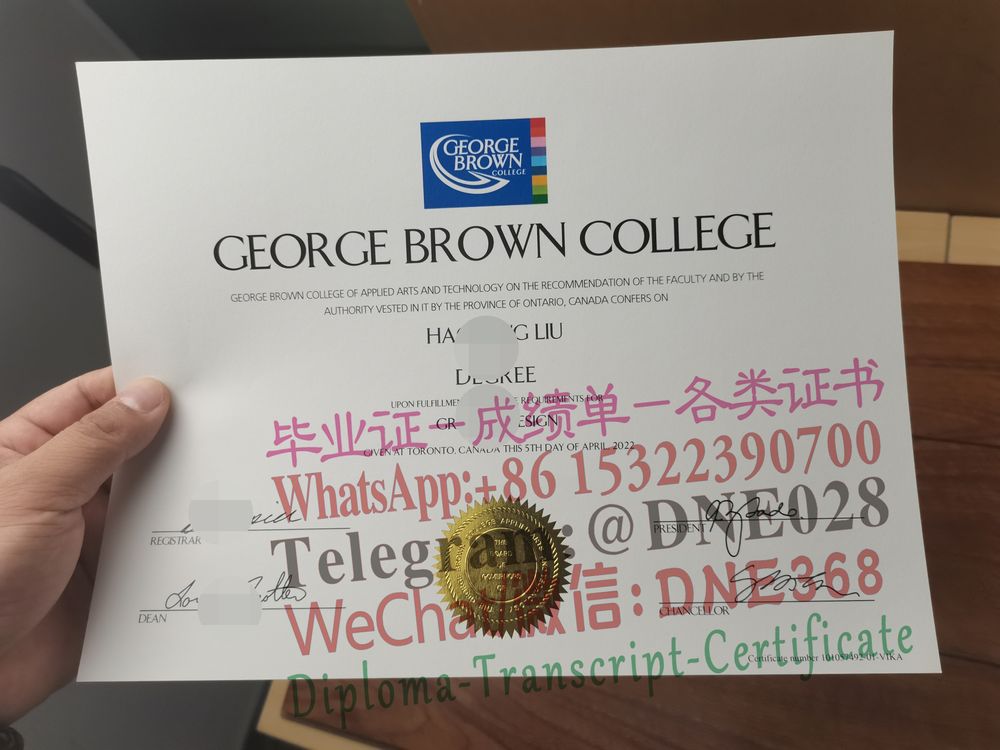 GEORGE
BROWN
COLLEGE
GEORGE BROWN COLLEGE
GEORGE BROWN COLLEGE OF APPLIED ARTS AND TECHNOLOGY ON THE RECOMMENDATION OF THE FACULTY AND BY THE
AUTHORITY VESTED IN IT BY THE PROVINCE OF ONTARIO, CANADA CONFERS ON
LIU
DEGREE
UPON REQUIREMENTS FOR
毕业证-成绩单-各类证书
GIVEN AT TORONTO, CANADA THIS 5TH DAY OF APRIL, 2022
WhatsApp:+86 15322390700
Telegram:@DNE028
REGISTRAR
PRESIDENT
WeChat微信:DNE368
DEAN
CHANCELLOR
Diploma-Transcript-Certificate